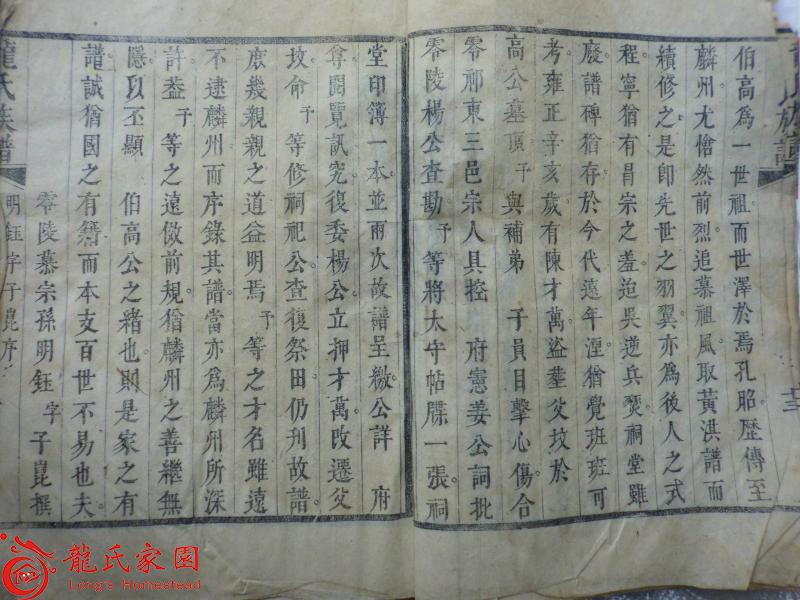 伯高為一世祖而世澤於焉孔昭歷傳至
麟州尤愴然前烈追慕祖風取黃洪譜而
續修之是即先世之羽翼亦為後人之式
程寧猶有昌宗之羞迨吳逆兵燹祠堂雖
廢譜碑猶存於今代遠年湮猶覺班班可
考雍正辛亥歲有陳才萬盜塟父坟於
高公墓頂予與補弟 子員目擊心傷合
零祁東三邑宗人具控 府憲姜公詞批
零陵楊公查勘予等將太守帖牒一張祠
堂印簿一本並兩次故譜呈繳公詳 府
尊閱覽訊究復委楊公立押才萬改遷父
坟命予等修祠祀公查復祭田仍刋故譜
庶幾親親之道益明焉予等之才名雖遠
不逮麟州而序錄其譜當亦為麟州所深
許葢予等之遠倣前規猶麟州之善繼無
隱以丕顯 伯高公之緒也則是家之有
譜誠猶國之有籍而本支百世不易也夫
零陵慕宗孫明鈺字子崑撰
龍氏族譜
明鈺字子崑序
龍氏家園
Long's Homestead